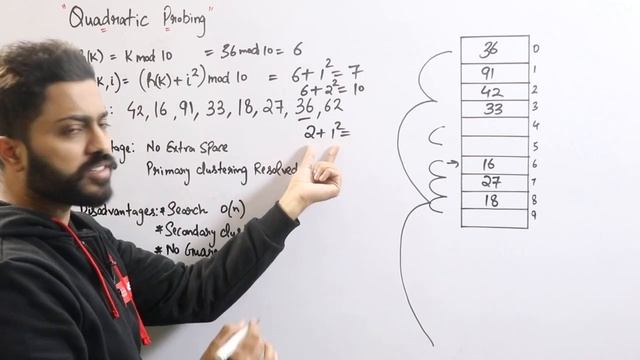 "Quadratic Probing"
(K) = K mod 10 = 36 mod 10 = 6
K,i) = (h(K) + i²) mod 10 = 6+1² = 7
6+2² = 10
: 42, 16, 91, 33, 18, 27, 36, 62
2+1² =
tage: No Extra Space
Primary clustering Resolved
Disadvantages: * Search O(n)
* Secondary clu
* No Guara
36 0
91 1
42 2
33 3
4
5
16 6
27 7
18 8
9